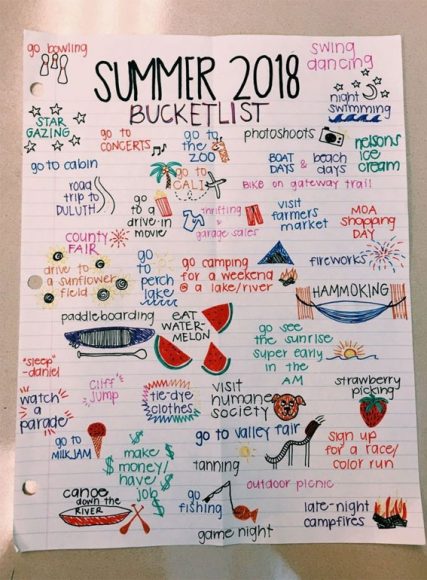 SUMMER 2018
BUCKETLIST
go bowling
swing
dancing
STAR
GAZING
night
swimming
go to
CONCERTS
go to
the
ZOO
photoshoots
nelsons
ice
cream
go to cabin
go to
CALI
BOAT
DAYS & beach
days
BIKE on gateway trail
road
trip to
DULUTH
go
to a
drive-in
movie
thrifting
+
garage sales
visit
farmers
market
MOA
shopping
DAY
county
FAIR
drive to
a sunflower
field
go
to
perch
lake
go camping
for a weekend
@ a lake/river
fireworks
HAMMOKING
paddleboarding
EAT
WATER-
MELON
go see
the sunrise
super early
in the
AM
"sleep"
-daniel
cliff
jump
tie-dye
clothes
visit
humane
society
strawberry
picking
watch
a
parade
go to
MILKJAM
make
money/
have
job
go to valley fair
tanning
sign up
for a race/
color run
outdoor picnic
canoe
down the
RIVER
go
fishing
late-night
campfires
game night